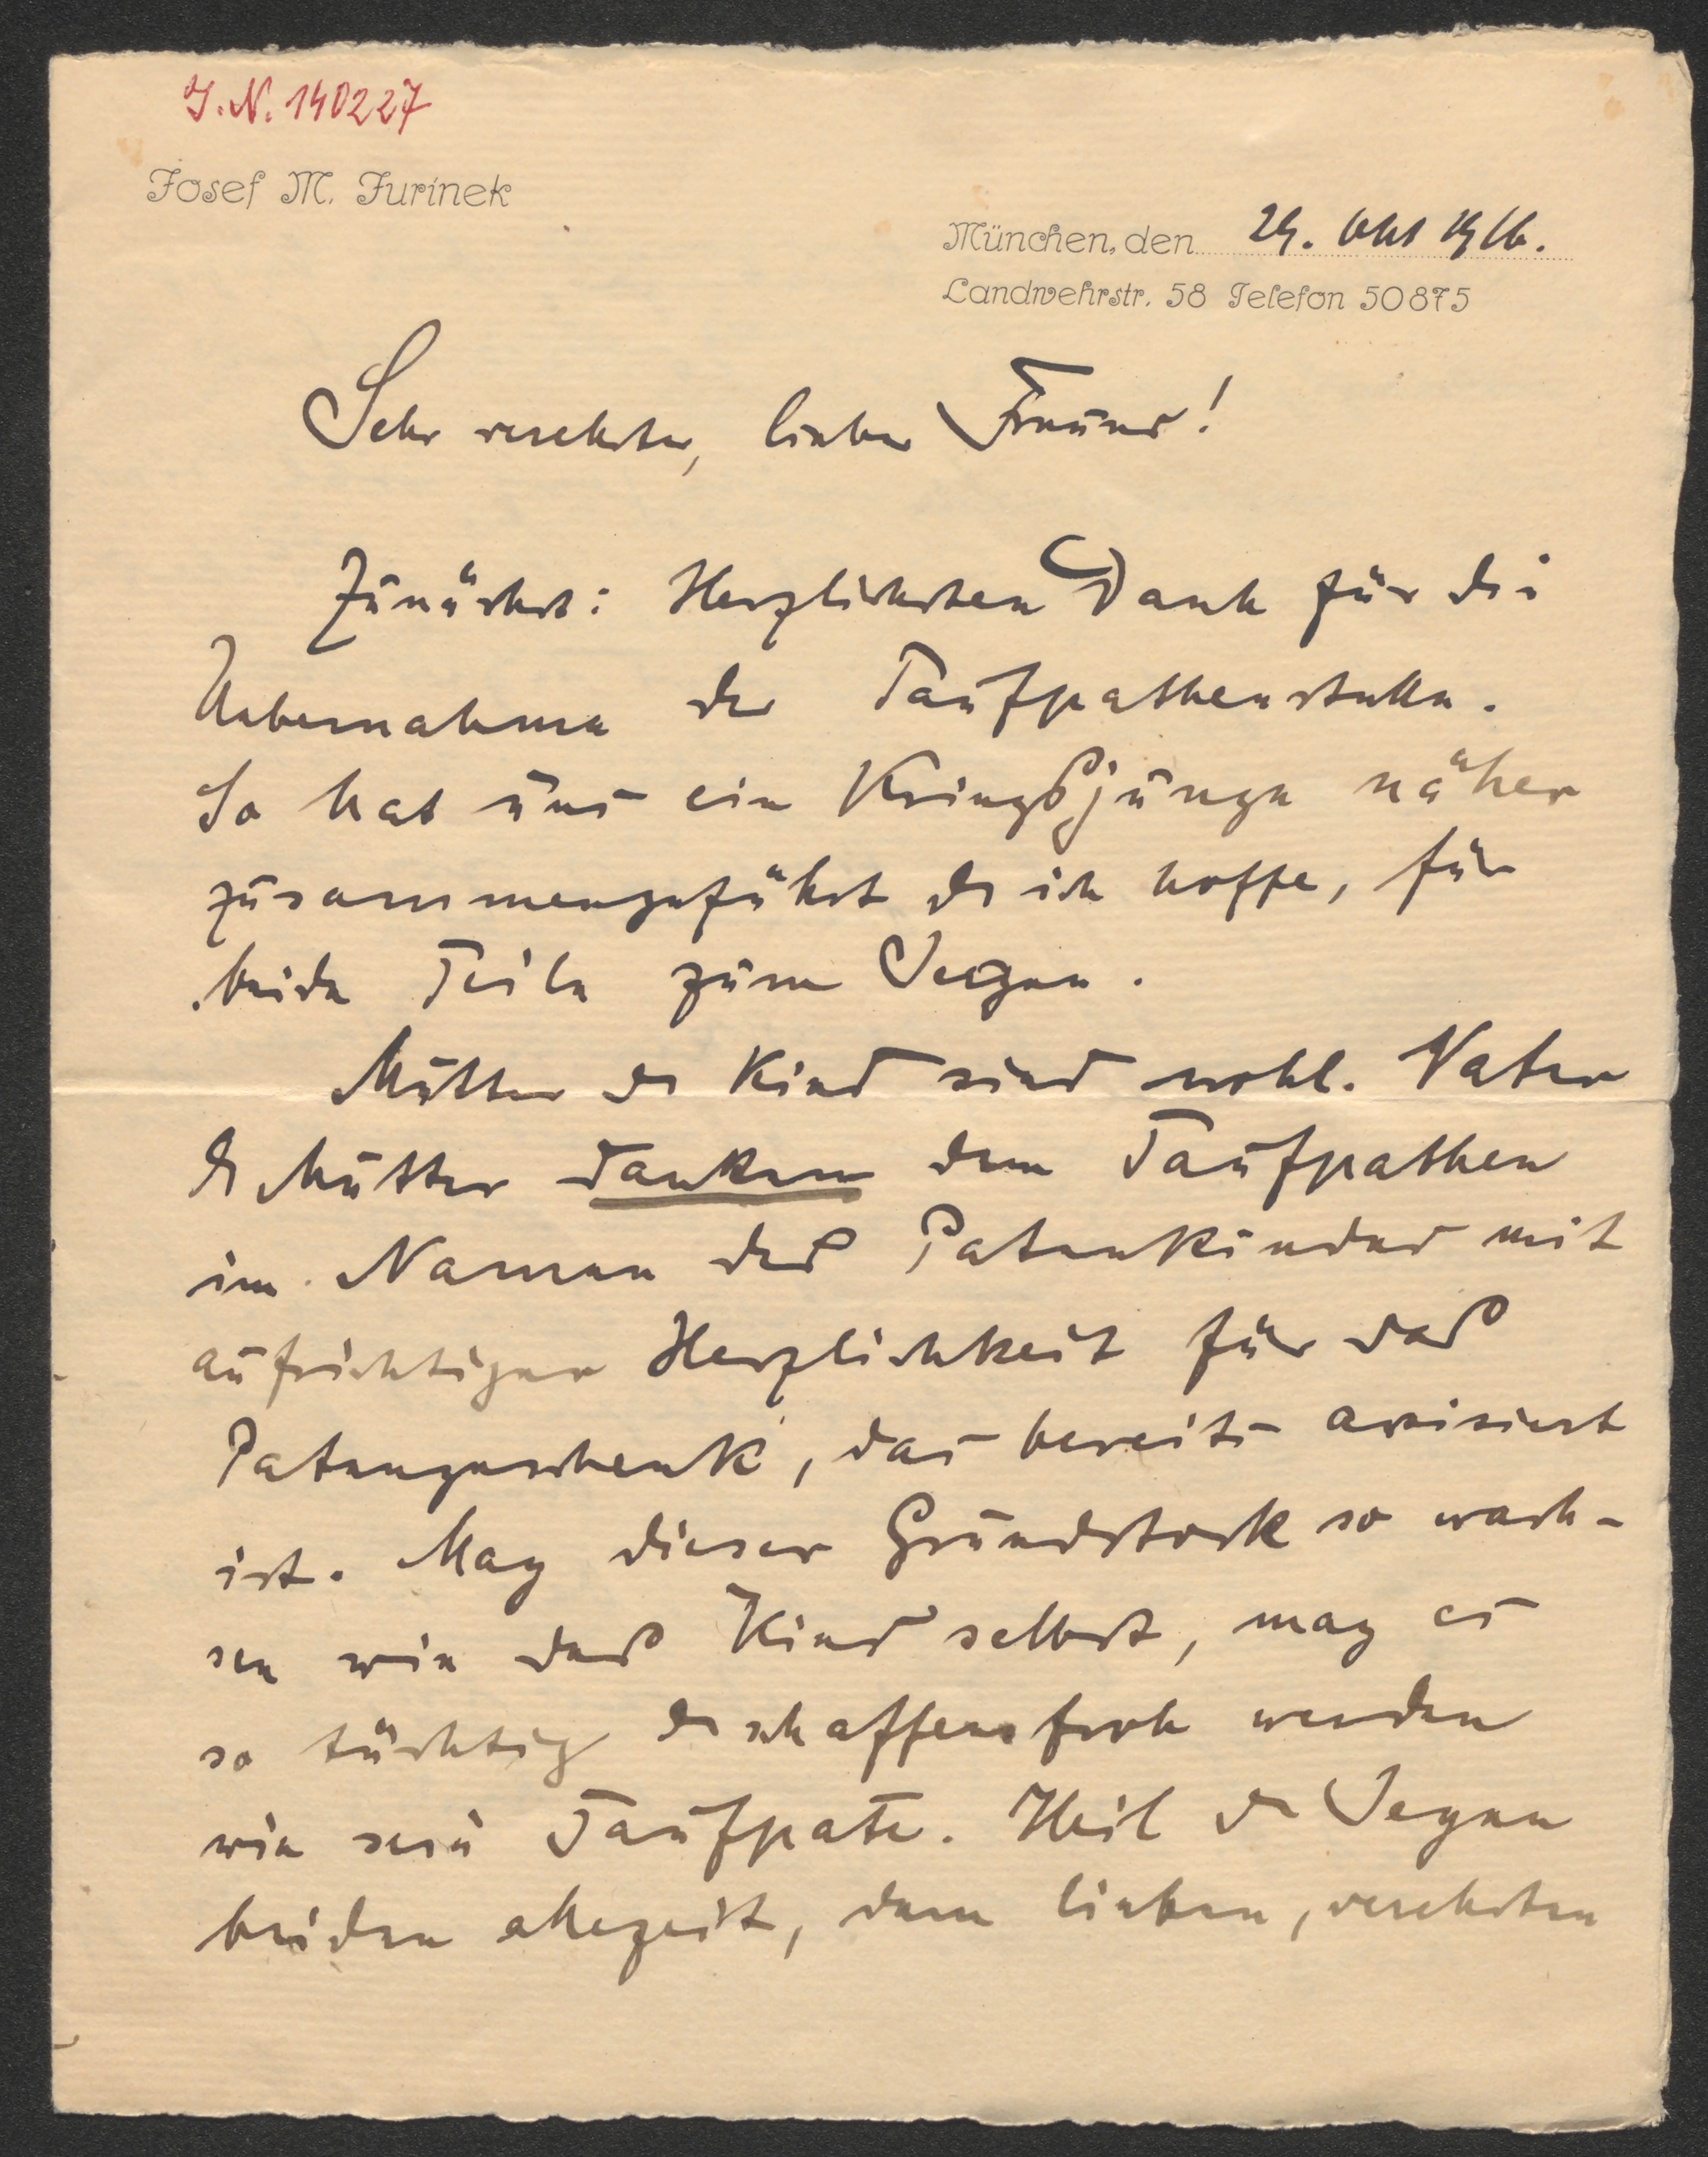 J.N. 140227
Josef M. Jurinek
München, den 29. Okt 1916.
Landwehrstr. 58 Telefon 50875
Sehr verehrter, lieber Freund!
Zunächst: Herzlichsten Dank für die
Uebernahme der Taufpathenstelle.
So hat uns ein Kriegsjunge näher
zusammengeführt & ich hoffe, für
beide Teile zum Segen.
Mutter & Kind sind wohl. Vater
& Mutter danken dem Taufpathen
im Namen des Patenkindes mit
aufrichtiger Herzlichkeit für das
Patengeschenk, das bereits avisiert
ist. Mag dieser Grundstock so wach-
sen wie das Kind selbst, mag es
so tüchtig & schaffensfroh werden
wie sein Taufpate. Heil & Segen
beiden allezeit, dem lieben, verehrten